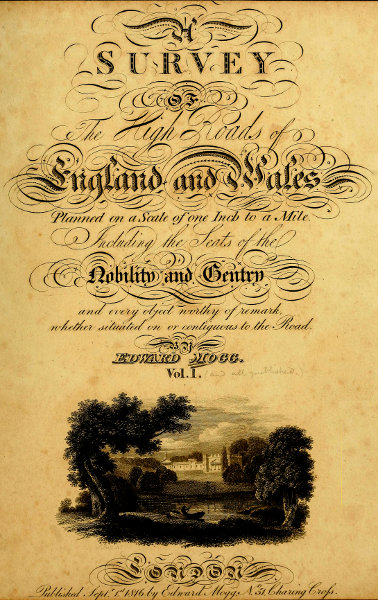 A
SURVEY
OF
The High Roads of
England and Wales
Planned on a Scale of one Inch to a Mile.
Including the Seats of the
Nobility and Gentry
and every object worthy of remark
whether situated on or contiguous to the Road.
BY
EDWARD MOGG.
Vol. I. (and all published.)
LONDON
Published Sept. 1st 1816 by Edward Mogg N. 51 Charing Cross.